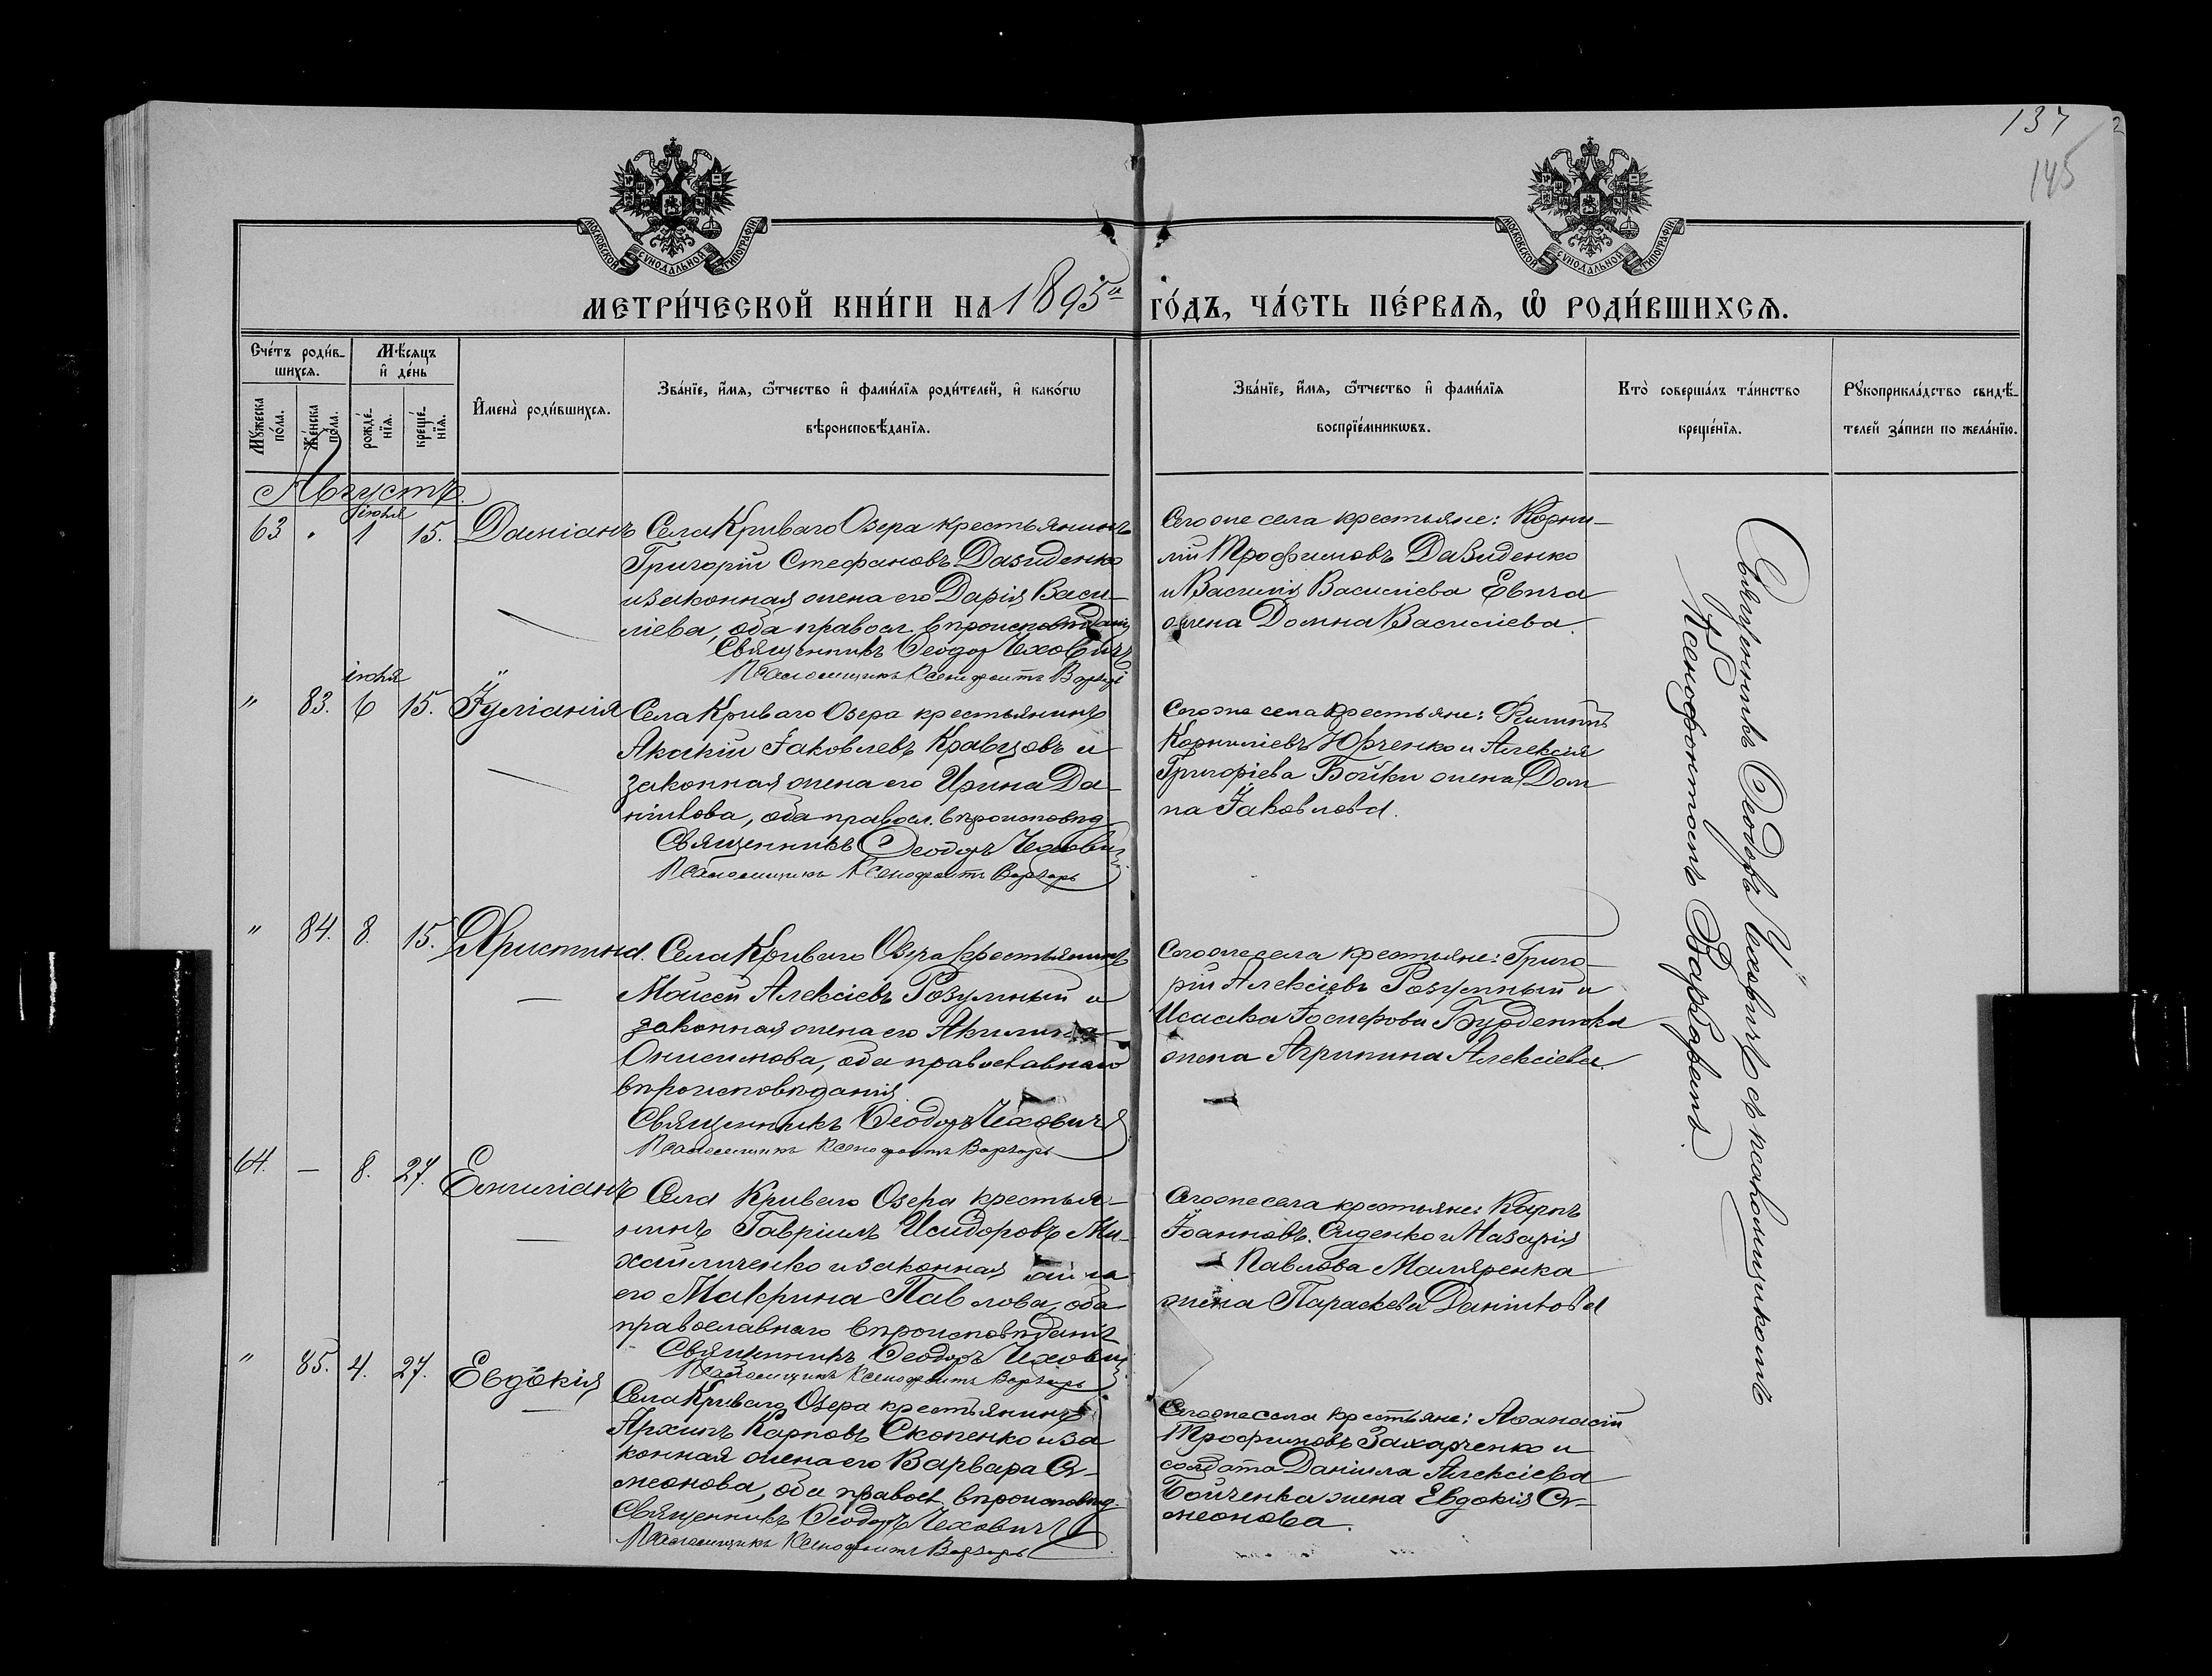 137
2
145
МОСКОВСКОЙ СУНОДАЛЬНОЙ ТИПОГРАФІИ
МОСКОВСКОЙ СУНОДАЛЬНОЙ ТИПОГРАФІИ
МЕТРИ́ЧЕСКОЙ КНИ́ГИ НА 1895й ГО́ДЪ, ЧА́СТЬ ПЕ́РВАѦ, Ѡ҆ РОДИ́ВШИХСѦ.
Сче́тъ роди́вшихсѧ.
Мѣ́сѧцъ и҆ де́нь
И҆мена̀ роди́вшихсѧ.
Зва́нїе, и҆́мѧ, ѻ҆́тчество и҆ фами́лїѧ роди́телей, и҆ како́гѡ
вѣроисповѣ́данїѧ.
Зва́нїе, и҆́мѧ, ѻ҆́тчество и҆ фами́лїѧ
воспрїе́мникѡвъ.
Кто̀ соверша́лъ та́инство
креще́нїѧ.
Рꙋкоприкла́дство свидѣ́-
телей за́писи по жела́нїю.
Мꙋ́жеска по́ла.
Же́нска по́ла.
рожде́-нїѧ.
креще́-нїѧ.
Августъ.
іюля
63 " 1 15. Даміанъ Села Криваго Озера крестьянинъ
Григорій Стефановъ Давиденко
и законная жена его Дарія Васи-
ліева, оба правосл. вѣроисповѣданія
Священникъ Ѳеодоръ Чеховичъ
Псаломщикъ Ксенофонтъ Варзарь
Сегоже села крестьяне: Корни-
лій Трофимовъ Давиденко
и Василія Василіева
жена Домна Василіева.
іюля
" 83. 6 15. Іуліанія Села Криваго Озера крестьянинъ
Акакій Іаковлевъ Кравцовъ и
законная жена его Ирина Да-
ніилова, оба правосл. вѣроисповѣд.
Священникъ Ѳеодоръ Чеховичъ
Псаломщикъ Ксенофонтъ Варзарь
Сегоже села крестьяне: Филиппъ
Корниліевъ Юрченко и Алексія
Григоріева Бойки жена Дом-
на Іаковлева.
" 84. 8. 15. Христина. Села Криваго Озера крестьянинъ
Моисей Алексіевъ Розумный и
законная жена его Акилина
Онисимова, оба православнаго
вѣроисповѣданія.
Священникъ Ѳеодоръ Чеховичъ
Псаломщикъ Ксенофонтъ Варзарь
Сегоже села крестьяне: Григо-
рій Алексіевъ Розумный и
Исаака Іосифова Бурденюка
жена Агрипина Алексіева.
64. — 8. 27. Емиліанъ Села Криваго Озера крестья-
нинъ Гавріилъ Исидоровъ Ми-
хайличенко и законная жена
его Макрина Павлова, оба
православнаго вѣроисповѣданія
Священникъ Ѳеодоръ Чеховичъ
Псаломщикъ Ксенофонтъ Варзарь
Сегоже села крестьяне: Кирпъ
Іоанновъ и Назарія
Павлова Маляренка
жена Параскева Даніилова
" 85. 4. 27. Евдокія
Села Криваго Озера крестьянинъ
Архипъ Карповъ Скопенко и за-
конная жена его Варвара Си-
меонова, оба правосл. вѣроисповѣд.
Священникъ Ѳеодоръ Чеховичъ
Псаломщикъ Ксенофонтъ Варзарь
Сегоже села крестьяне: Аѳанасій
Трофимовъ Захарченко и
солдата Даніила Алексіева
Бойченка жена Евдокія Си-
меонова.
Священникъ Ѳеодоръ Чеховичъ съ псаломщикомъ
Ксенофонтомъ Варзаремъ.